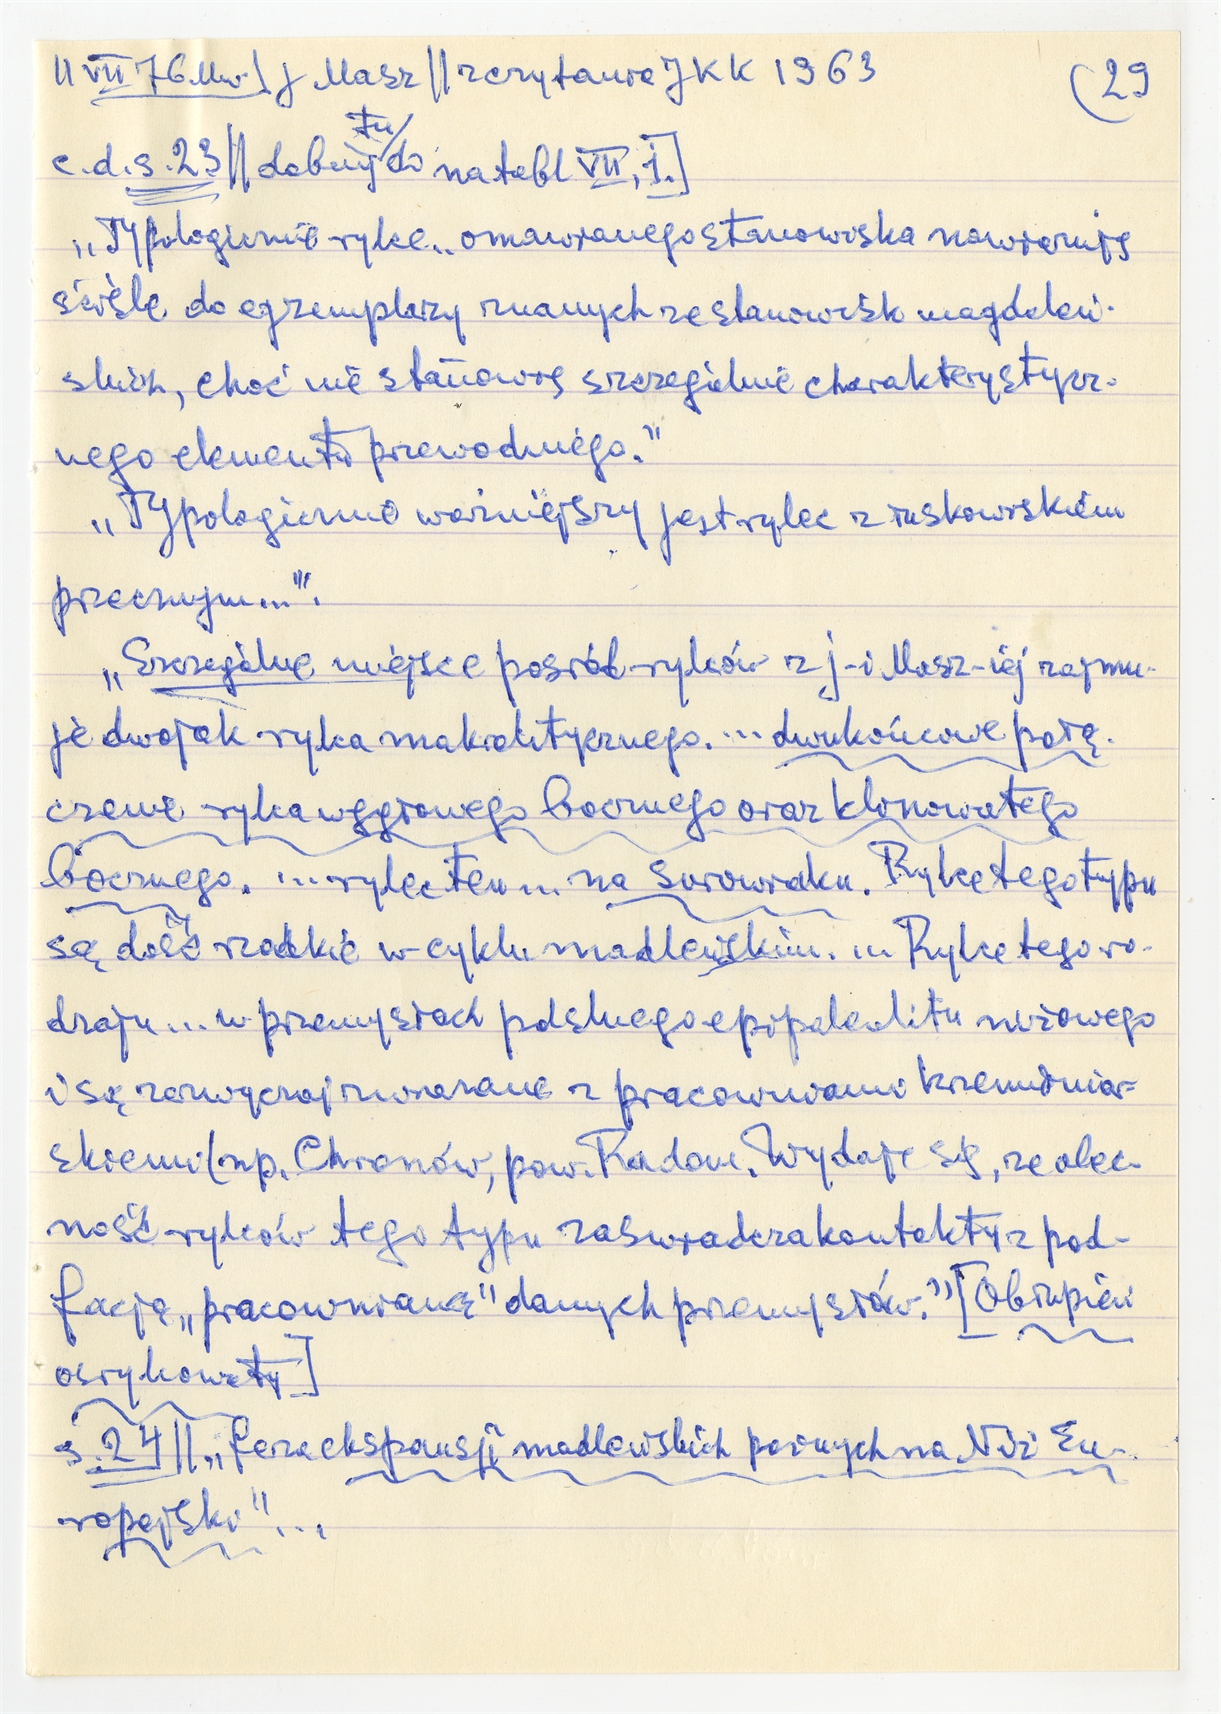 11 VII 76 Mw.] j Masz || zczytanie JKK 1963 (29
c.d. s. 23 || dobny tu/ do na tabl VII, 1.]
„Typologicznie rylce.. omawianego stanowiska nawiązują
ściśle do egzemplarzy znanych ze stanowisk magdaleń-
skich, choć nie stanowią szczególnie charakterystycz-
nego elementu przewodniego."
„Typologicznie ważniejszy jest rylec z łuskowiskiem
poprzecznym..."
„Szczególne miejsce pośród rylców z j-i Masz-iej zajmu-
je dwojak rylca makrolitycznego. ... dwukońcowe połą-
czenie rylca węgłowego bocznego oraz klinowatego
bocznego. ... rylec ten ... na surowiaku. Rylce tego typu
są dość rzadkie w cyklu madleńskim. ... Rylce tego ro-
dzaju ... w przemysłach polskiego epipaleolitu niżowego
i są zazwyczaj związane z pracowniami krzemieniar-
skiemi (np. Chronów, pow. Radom. Wydaje się, że obec-
ność rylców tego typu zaświadcza kontakty z pod-
facją „pracownianą" danych przemysłów." [Obłupień
osrylkowaty]
s. 24 || „feza ekspansji madleńskich późnych na Niż Eu-
ropejski"...